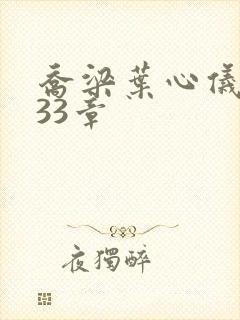 喬梁葉心儀
33章
夜獨醉